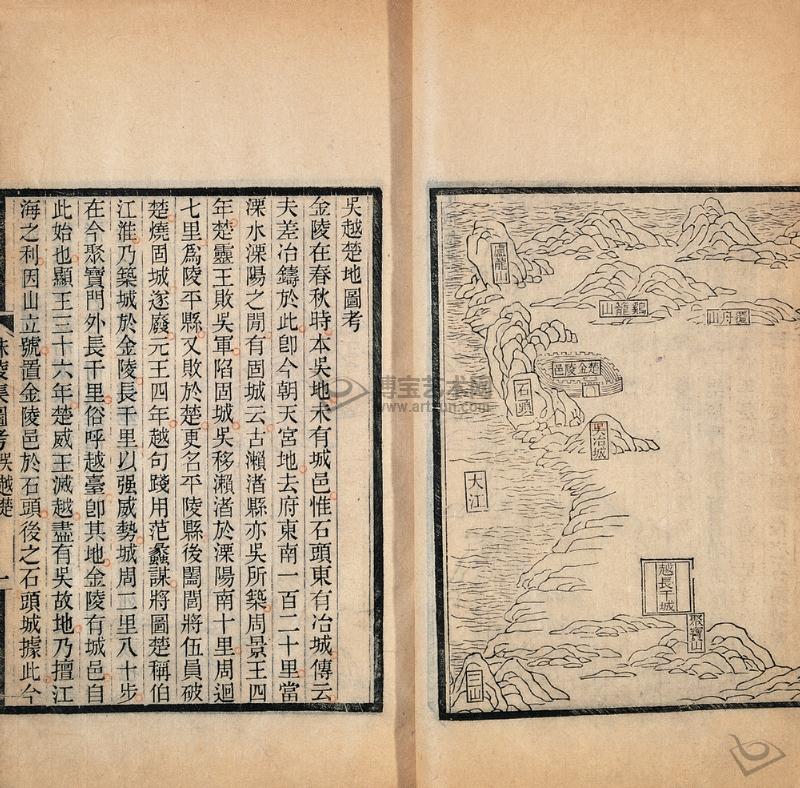 盧龍山
雞籠山
覆舟山
楚金陵邑
石頭
吳冶城
大江
越長干城
聚寶山
三山
吳越楚地圖考
金陵在春秋時本吳地未有城邑惟石頭東有冶城傳云
夫差冶鑄於此卽今朝天宮地去府東南一百二十里當
溧水溧陽之閒有固城云古瀨渚縣亦吳所築周景王四
年楚靈王敗吳軍陷固城吳移瀨渚於溧陽南十里周迴
七里爲陵平縣又敗於楚更名平陵縣後闔閭將伍員破
楚燒固城遂廢元王四年越句踐用范蠡謀將圖楚稱伯
江淮乃築城於金陵長干里以强威勢城周二里八十步
在今聚寶門外長干里俗呼越臺卽其地金陵有城邑自
此始也顯王三十六年楚威王滅越盡有吳故地乃擅江
海之利因山立號置金陵邑於石頭後之石頭城據此今
秣陵集圖考 吳越楚 一
博宝艺术网
www.artxun.com